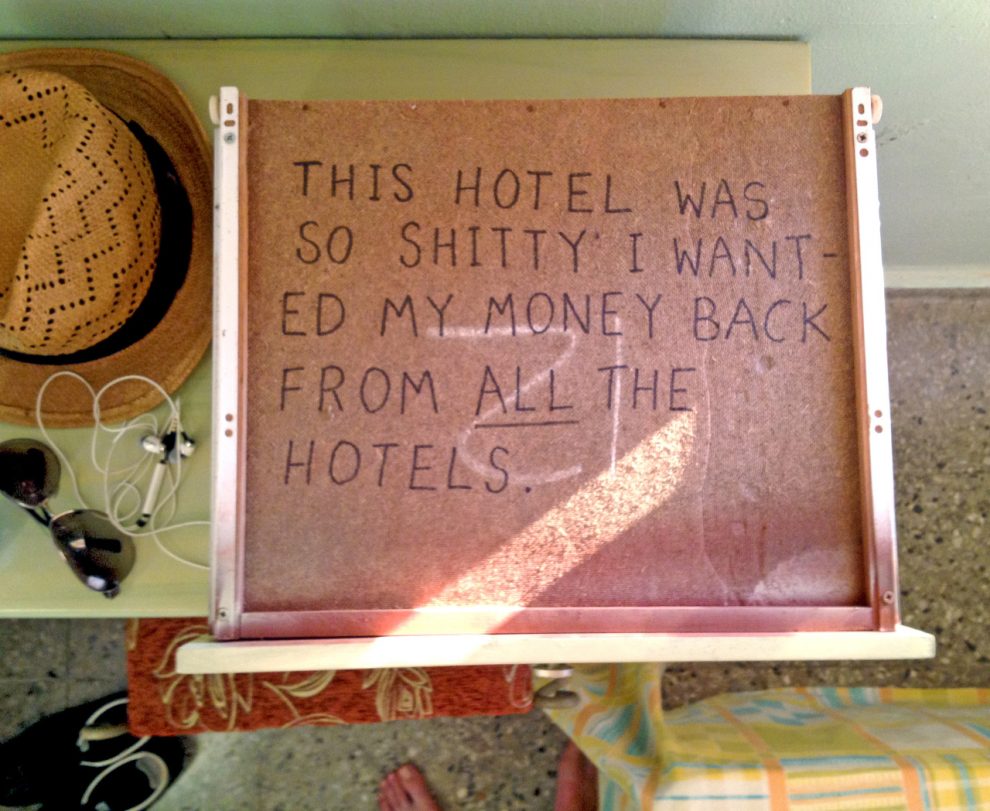 THIS HOTEL WAS
SO SHITTY I WANT-
ED MY MONEY BACK
FROM ALL THE
HOTELS.
21